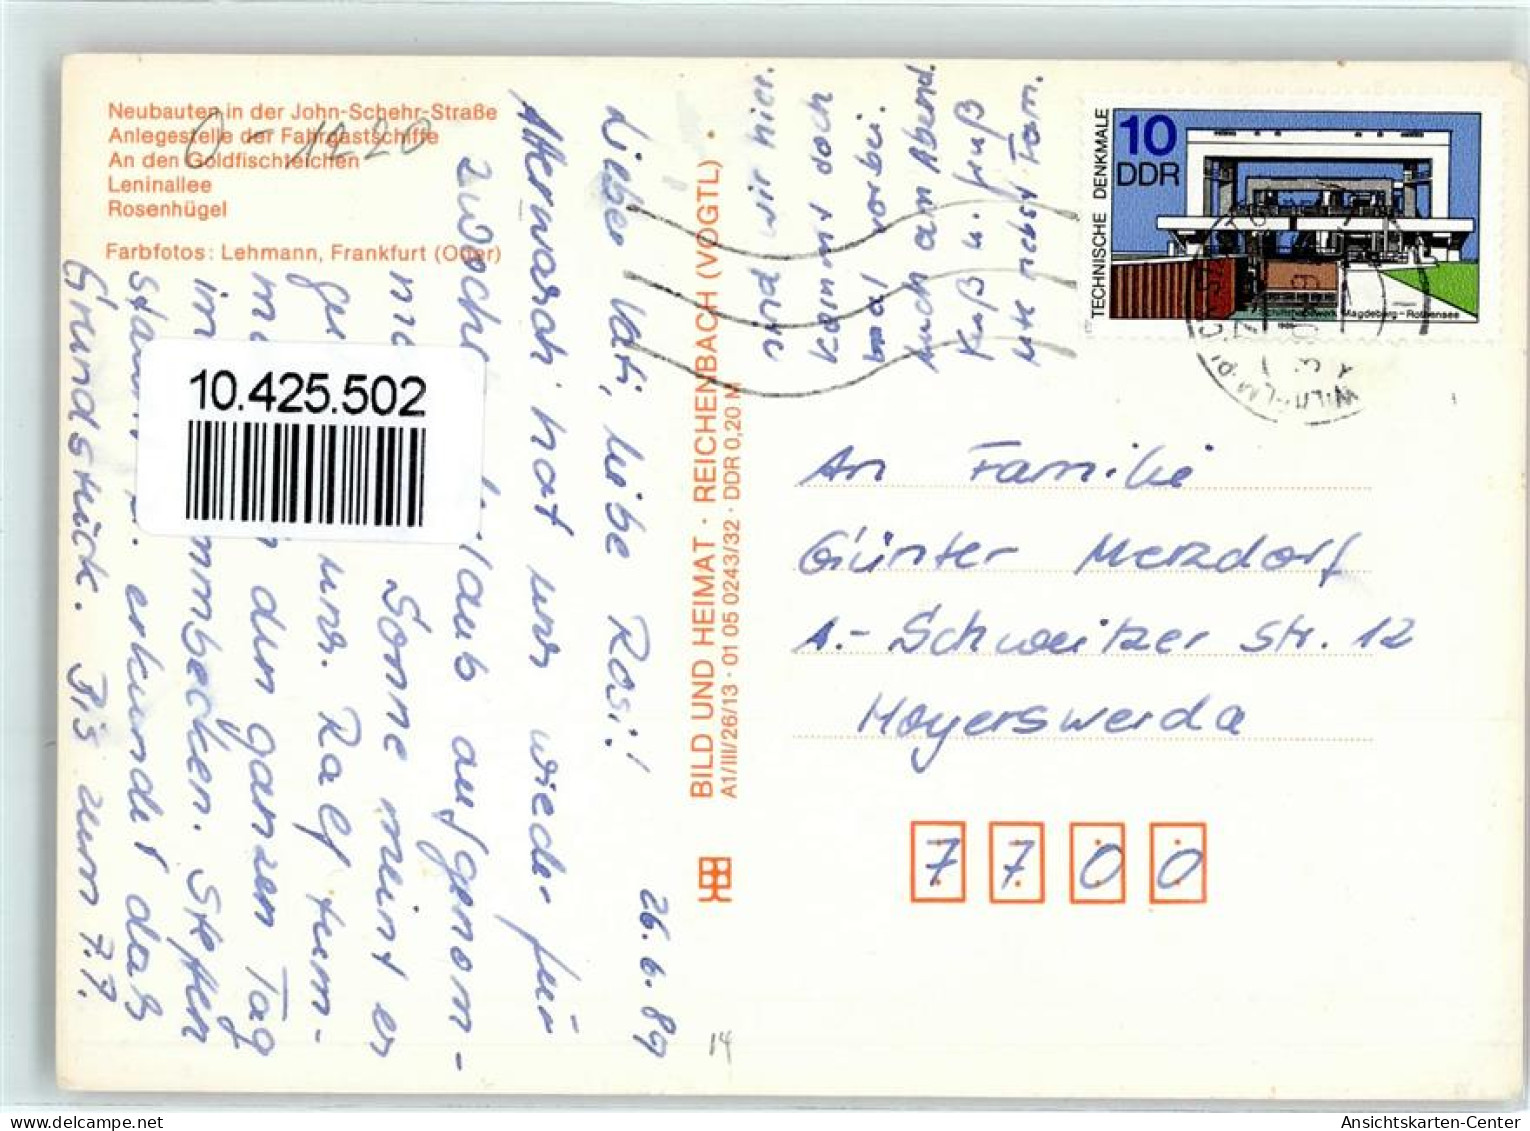 Neubauten in der John-Schehr-Straße
Anlegestelle der Fahrgastschiffe
An den Goldfischteichen
Leninallee
Rosenhügel
Farbfotos: Lehmann, Frankfurt (Oder)
0-1220
10.425.502
26.6.89
Liebe Vati, liebe Rosi!
Afterwasch hat uns wieder für
2 Woche laub aufgenom-
Sonne meint er
uns. Ralf tum-
den ganzen Tag
im mmbecken. Steffen
stamm erkundet das
Grundstück. Bis zum 7.7.
sind wir hier.
Kommt doch
mal vorbei.
Auch am Abend.
Kuß u. Gruß
Ute nebst Fam.
BILD UND HEIMAT · REICHENBACH (VOGTL)
A1/III/26/13 · 01 05 0243/32 · DDR 0,20 M
14
10
DDR
TECHNISCHE DENKMALE
Schiffshebewerk Magdeburg-Rothensee
1988
WILHELM-PI
An Familie
Günter Merzdorf
A.-Schweitzer Str. 12
Hoyerswerda
7700
Ansichtskarten-Center